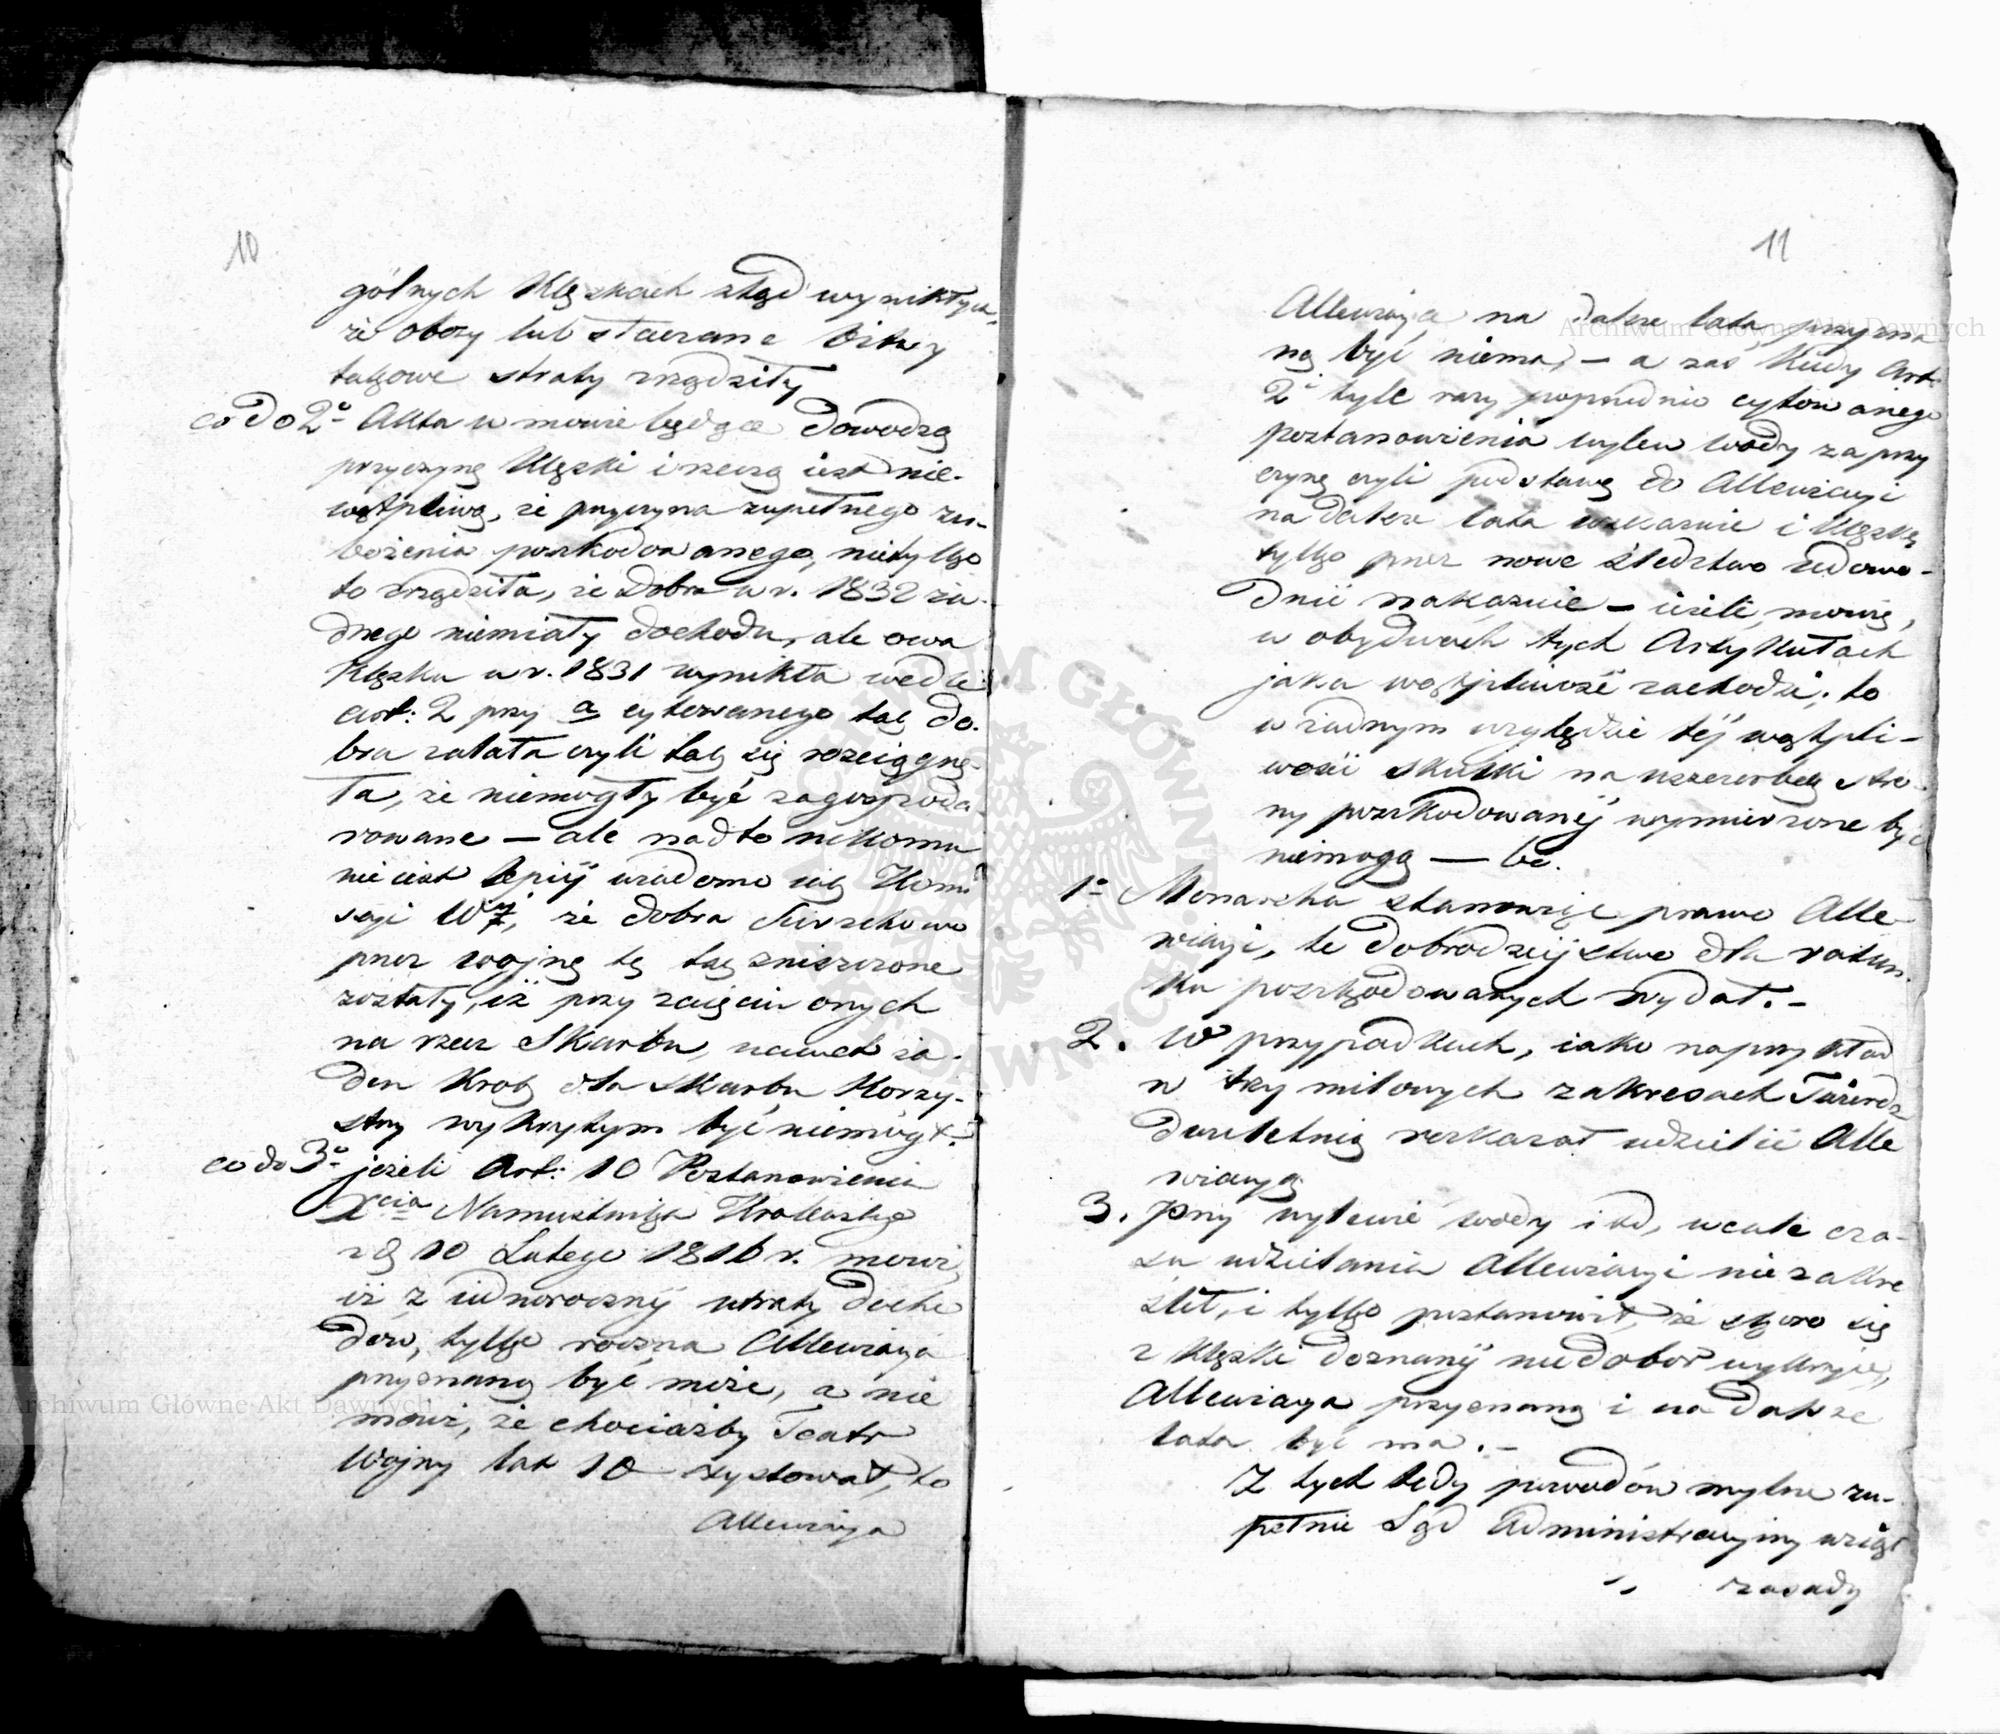 10
gólnych Klęskach ztąd wynikłych,
że obozy lub staczane bitwy
takowe straty zrządziły
co do 2o Akta w mowie będące dowodzą
przyczynę Klęski i rzeczą iest nie-
wątpliwą, że przyczyna zupełnego zu-
bożenia poszkodowanego, nietylko
to zrządziła, że Dobra w r. 1832 ża-
dnego niemiały dochodu, ale owa
Klęska w r. 1831 wynikła wedle
art: 2 przy a cytowanego tak do-
bra zalała czyli tak się rozciągnę-
ła, że niemogły być zagospoda
rowane — ale nadto nikomu
nie iest lepiéj wiadomo iak Kom̃i
ssyi Wj, że dobra
przez wojnę tę tak zniszczone
zostały, iż przy zaięciu onych
na rzecz Skarbu, nawet ża-
den Krok dla Skarbu Korzy-
stny wykrytym być niemógł.
co do 3o jeżeli Art: 10 Postanowienia
Xcia Namiestnika Królewskiego
z d 10 Lutego 1816 r. mowi,
iż z iednorocznéj utraty docho
dów, tylko roczna Allewiacya
przyznaną być może, a nie
mowi, że chociażby Teatr
Wojny lat 10 exystował, to
Allewiacya
11
Allewiacya na dalsze lata przyzna
ną być niema, — a zaś Kiedy Art.
2i tyle razy poprzednio cytowanego
postanowienia wylew wody za przy
czynę czyli podstawę do Allewiacyi
na dalsze lata wskazuie i Klęskę
tylko przez nowe śledztwo udowo-
dnić nakazuie — ieżeli, mowię,
w obydwóch tych Artykułach
jaka wątpliwość zachodzi, to
w żadnym względzie téj wątpli-
wości skutki na uszczerbek stro-
ny poszkodowanéj wymierzone być
niemogą — bo.
1o Monarcha stanowiąc prawo Alle-
wiacyi, te dobrodzieystwo dla ratun-
ku poszkodowanych wydał. -
2. W przypadkach, iako naprzykład
w trzy milowych zakresach Twierdz
dwuletnią rozkazał udzielić Alle
wiacyą
3. Przy wylewie wody i t d, wcale cza-
su udzielania Allewiacyi nie zakre
ślił, i tylko postanowił, że skoro się
z Klęski doznanéj niedobór wykryie,
Allewiacya przyznaną i na dalsze
lata być ma. -
Z tych tedy powodów mylne zu-
pełnie Sąd Administracyiny wziął
zasady
Archiwum Główne Akt Dawnych
Archiwum Główne Akt Dawnych
ARCHIWUM GŁÓWNE AKT DAWNYCH